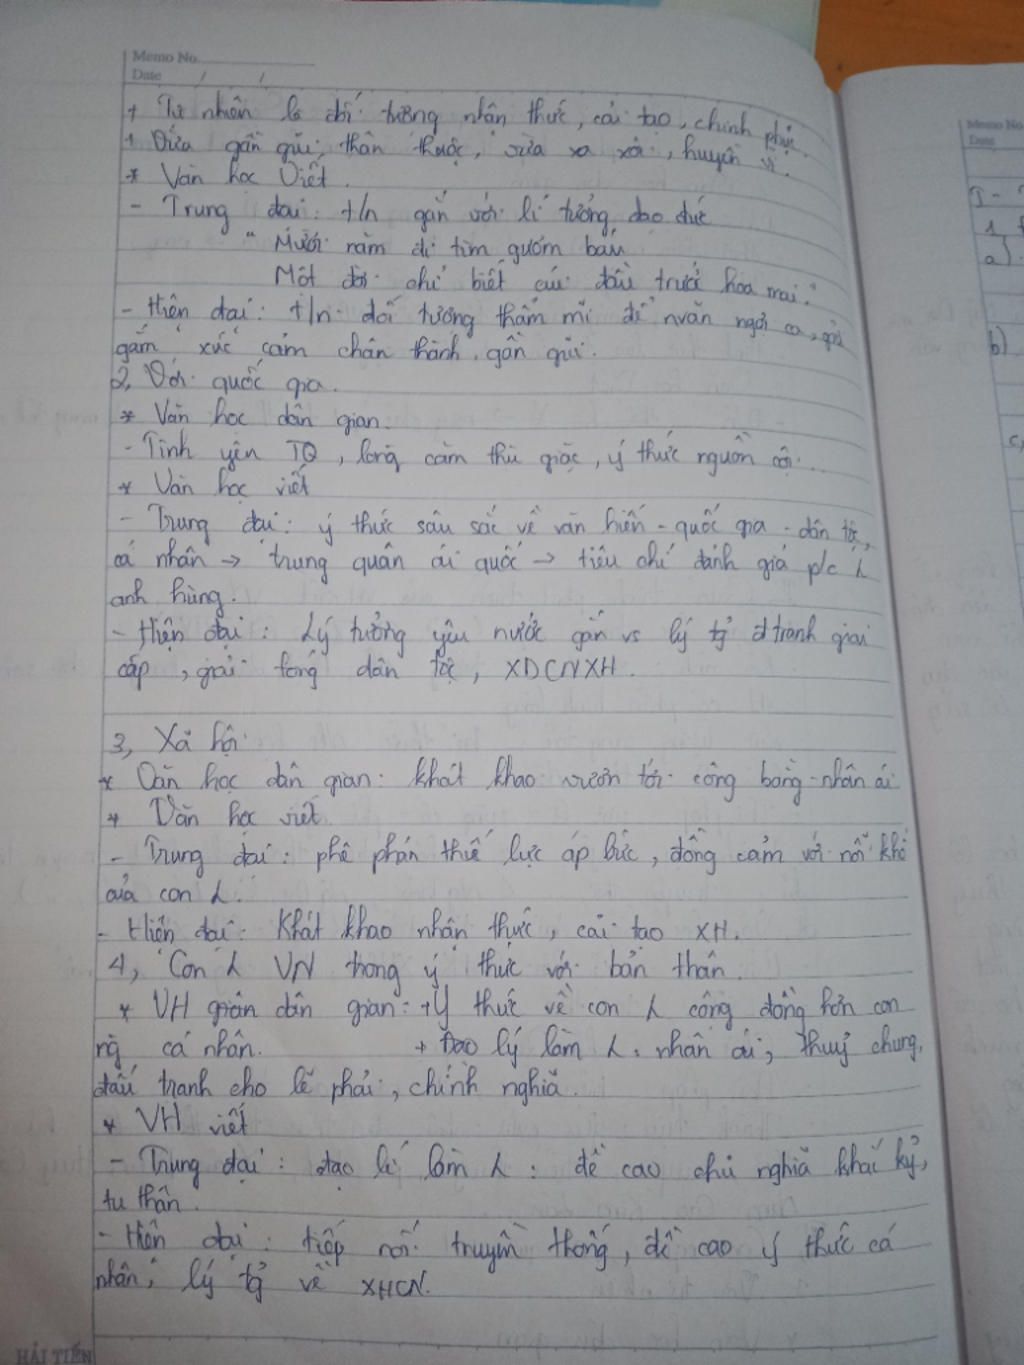 Memo No.
Date / /
+ Tự nhiên là đối tượng nhận thức, cải tạo, chinh phục.
+ Vừa gần gũi, thân thuộc, vừa xa xôi, huyền vi.
* Văn học Viết.
- Trung đại: t/n gắn với lí tưởng, đạo đức
"Mười năm đi tìm gươm báu
Một đời chỉ biết cúi đầu trước hoa mai."
- Hiện đại: t/n đối tượng thẩm mĩ để nvăn ngợi ca, gửi
gắm xúc cảm chân thành, gần gũi.
2, Với quốc gia.
* Văn học dân gian.
- Tình yêu TQ, lòng căm thù giặc, ý thức nguồn cội...
* Văn học viết
- Trung đại: ý thức sâu sắc về văn hiến - quốc gia - dân tộc,
cá nhân → trung quân ái quốc → tiêu chí đánh giá p/c L
anh hùng.
- Hiện đại: Lý tưởng yêu nước gắn vs lý tg̉ đtranh giai
cấp, giải fóng dân tộc, XDCNXH.
3, Xã hội
* Văn học dân gian: khát khao vươn tới công bằng - nhân ái
* Văn học viết.
- Trung đại: phê phán thế lực áp bức, đồng cảm với nỗi khổ
của con L.
- Hiện đại: Khát khao nhận thức, cải tạo XH.
4, Con L VN trong ý thức với bản thân.
* VH giân dân gian: +Ý thức về con L công đồng hơn con
ng cá nhân. + Đạo lý làm L: nhân ái, thuỷ chung,
đấu tranh cho lẽ phải, chính nghĩa.
* VH viết
- Trung đại: đạo lí làm L: đề cao chủ nghĩa khắc kỷ,
tu thân.
- Hiện đại: tiếp nối truyền thống, đề cao ý thức cá
nhân, lý tg̉ về XHCN.
HẢI TIẾN
Memo No
Date
1,
a)
b)
c,